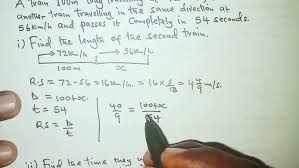 A train 100m long travelling
another train travelling in the same direction at
56km/h and passes it completely in 54 seconds.
i) Find the length of the second train.
72km/hr 56km/h
100m x
R.S = 72-56 = 16km/h. = 16 x 5/18 = 4 4/9 m/s.
D = 100+x
t = 54
RS = D/t
40/9 = 100+x/54
ii) Find the time they